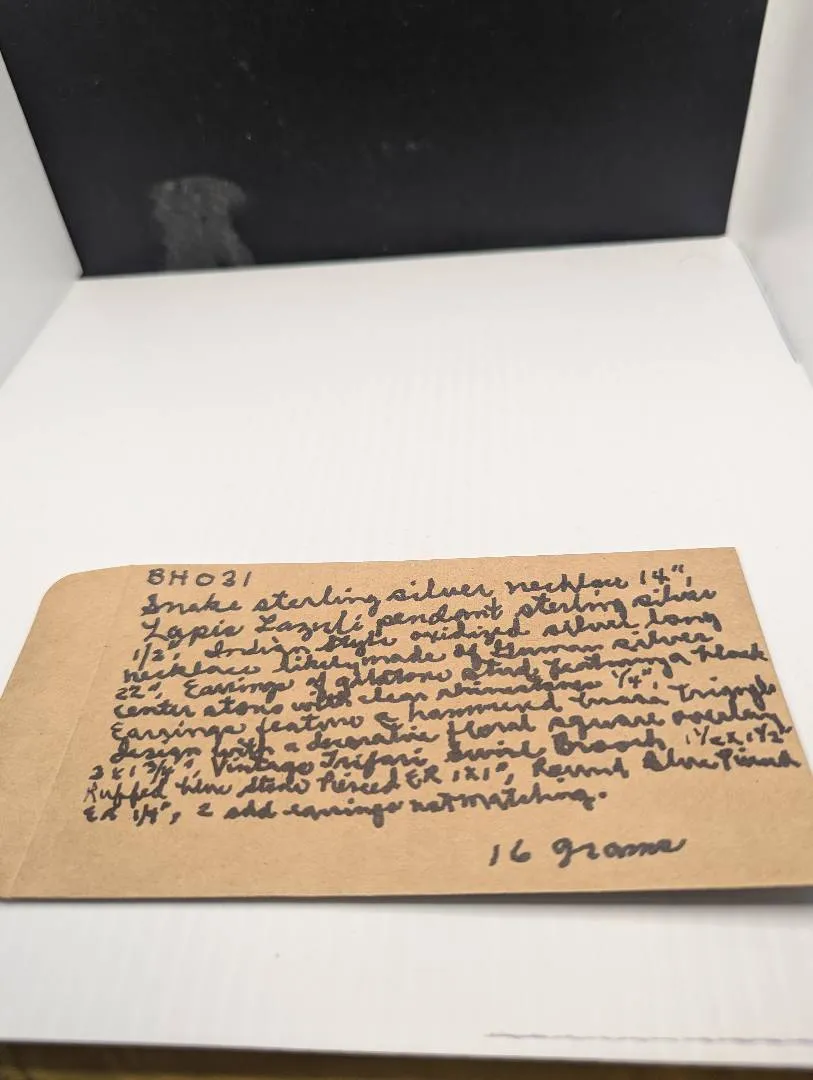 BH031
Snake sterling silver necklace 14",
Lapis Lazuli pendant sterling silver
1/2", Indian style oxidized silver long
necklace likely made of German silver
22", Earrings of goldstone stud, featuring a black
center stone with clear rhinestones 1/4",
Earrings feature a hammered brass triangle
design with a decorative floral square overlay
3 x 1 3/4", Vintage Trifari Swirl Brooch 1 1/2 x 1 1/2"
Ruffed Stone Pierced ER 1x1", Round Blue Pierced
ER 1/4", 2 odd earrings not matching.
16 grams